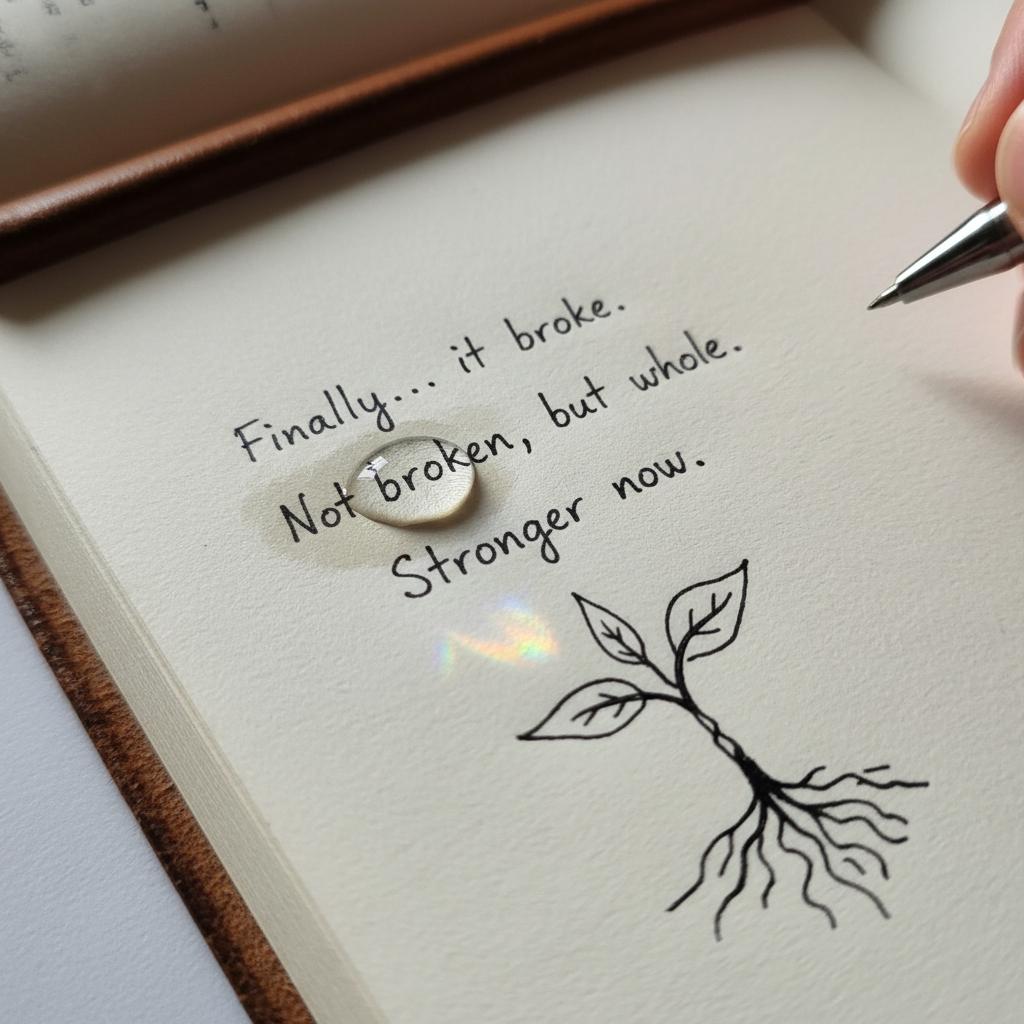 Finally... it broke.
Not broken, but whole.
Stronger now.